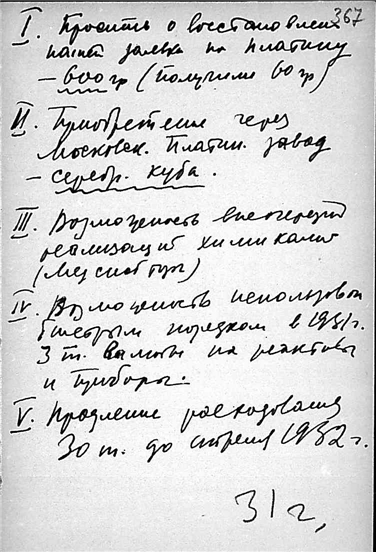 367
I. Просить о восстановлении
нашей заявки на платину
– 600 гр (получили 60 гр)
II. Приобретение через
Московск. Платин. завод
– серебр. куба.
III. Возможность внеочередной
реализации химикалий
(Медснабторг)
IV. Возможность использовать
быстрым порядком в 1931 г.
3 т. валюты на реактивы
и приборы.
V. Продление расходования
30 т. до апреля 1932 г.
31 г,